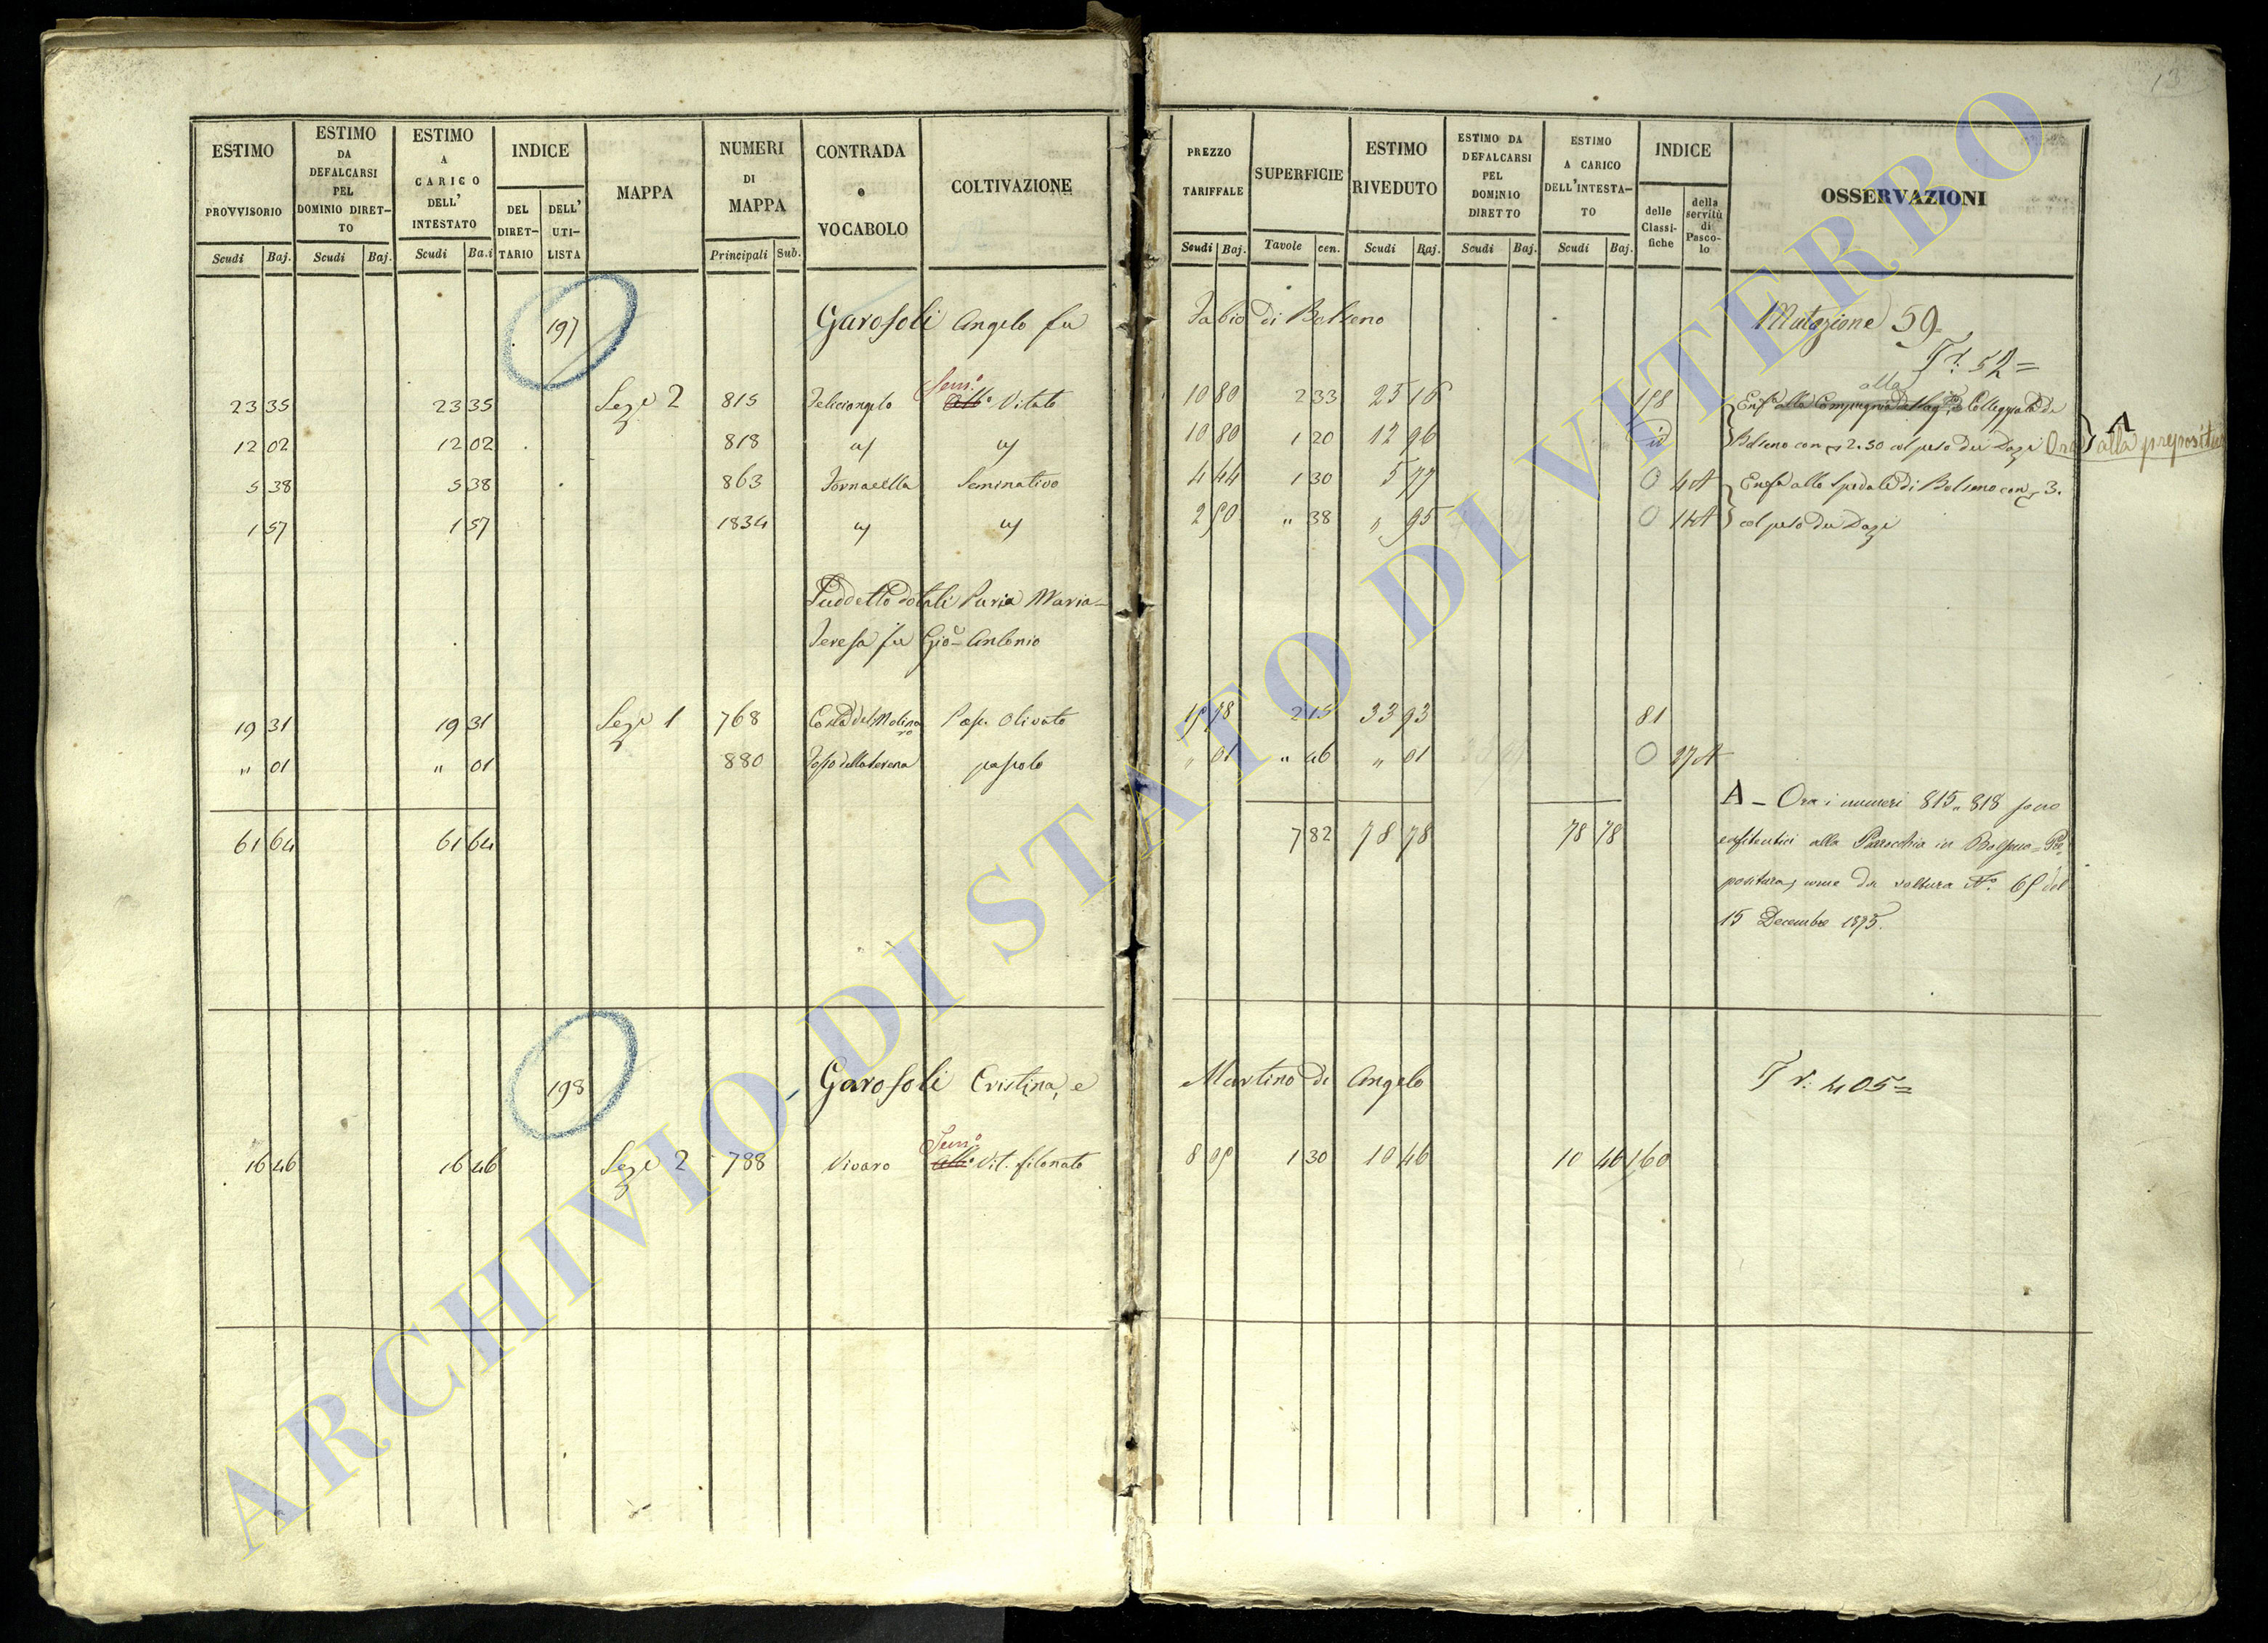 13
ESTIMO PROVVISORIO Scudi Baj.
ESTIMO DA DEFALCARSI PEL DOMINIO DIRET-TO Scudi Baj.
ESTIMO A CARICO DELL' INTESTATO Scudi Ba.i
INDICE DEL DIRET-TARIO DELL' UTI-LISTA
MAPPA
NUMERI DI MAPPA Principali Sub.
CONTRADA o VOCABOLO
COLTIVAZIONE
PREZZO TARIFFALE Scudi Baj.
SUPERFICIE Tavole cen.
ESTIMO RIVEDUTO Scudi Baj.
ESTIMO DA DEFALCARSI PEL DOMINIO DIRETTO Scudi Baj.
ESTIMO A CARICO DELL'INTESTA-TO Scudi Baj.
INDICE delle Classi-fiche della servitù di Pasco-lo
OSSERVAZIONI
197 Garofoli Angelo fu Fabio di Bolseno Mutazione 59
Tr: 52=
23 35 23 35 Seze 2 815 Feliciangelo Semo Vitato 10 80 2 33 25 16 198
alla Collegiata di
12 02 12 02 818 " " 10 80 1 20 12 96 id Bolseno con 2.50 col peso dei Dazi Ora alla prepositura
A
5 38 5 38 863 Fornacella Seminativo 4 44 1 30 5 77 0 4A Enfa allo Spedale di Bolseno con 3.
1 57 1 57 1834 " " 2 50 " 38 " 95 0 14A col peso dei Dazi
Suddetto dotali Puria Maria
Teresa fu Gio Antonio
19 31 19 31 Seze 1 768 Costa del Molinaro Paso Olivato 15 78 2 15 33 93 81
" 01 " 01 880 Fosso della Serena pascolo " 01 " 46 " 01 0 27A
A – Ora i numeri 815, 818 sono
61 64 61 64 7 82 78 78 78 78 enfiteutici alla Parrocchia in Bolseno = Pre
positura, come da voltura No. 65 del
15 Decembre 1875.
198 Garofoli Cristina, e Martino di Angelo Tr: 405=
16 46 16 46 Seze 2 788 Vivaro Semo Vit. filonato 8 05 1 30 10 46 10 46 160
ARCHIVIO DI STATO DI VITERBO